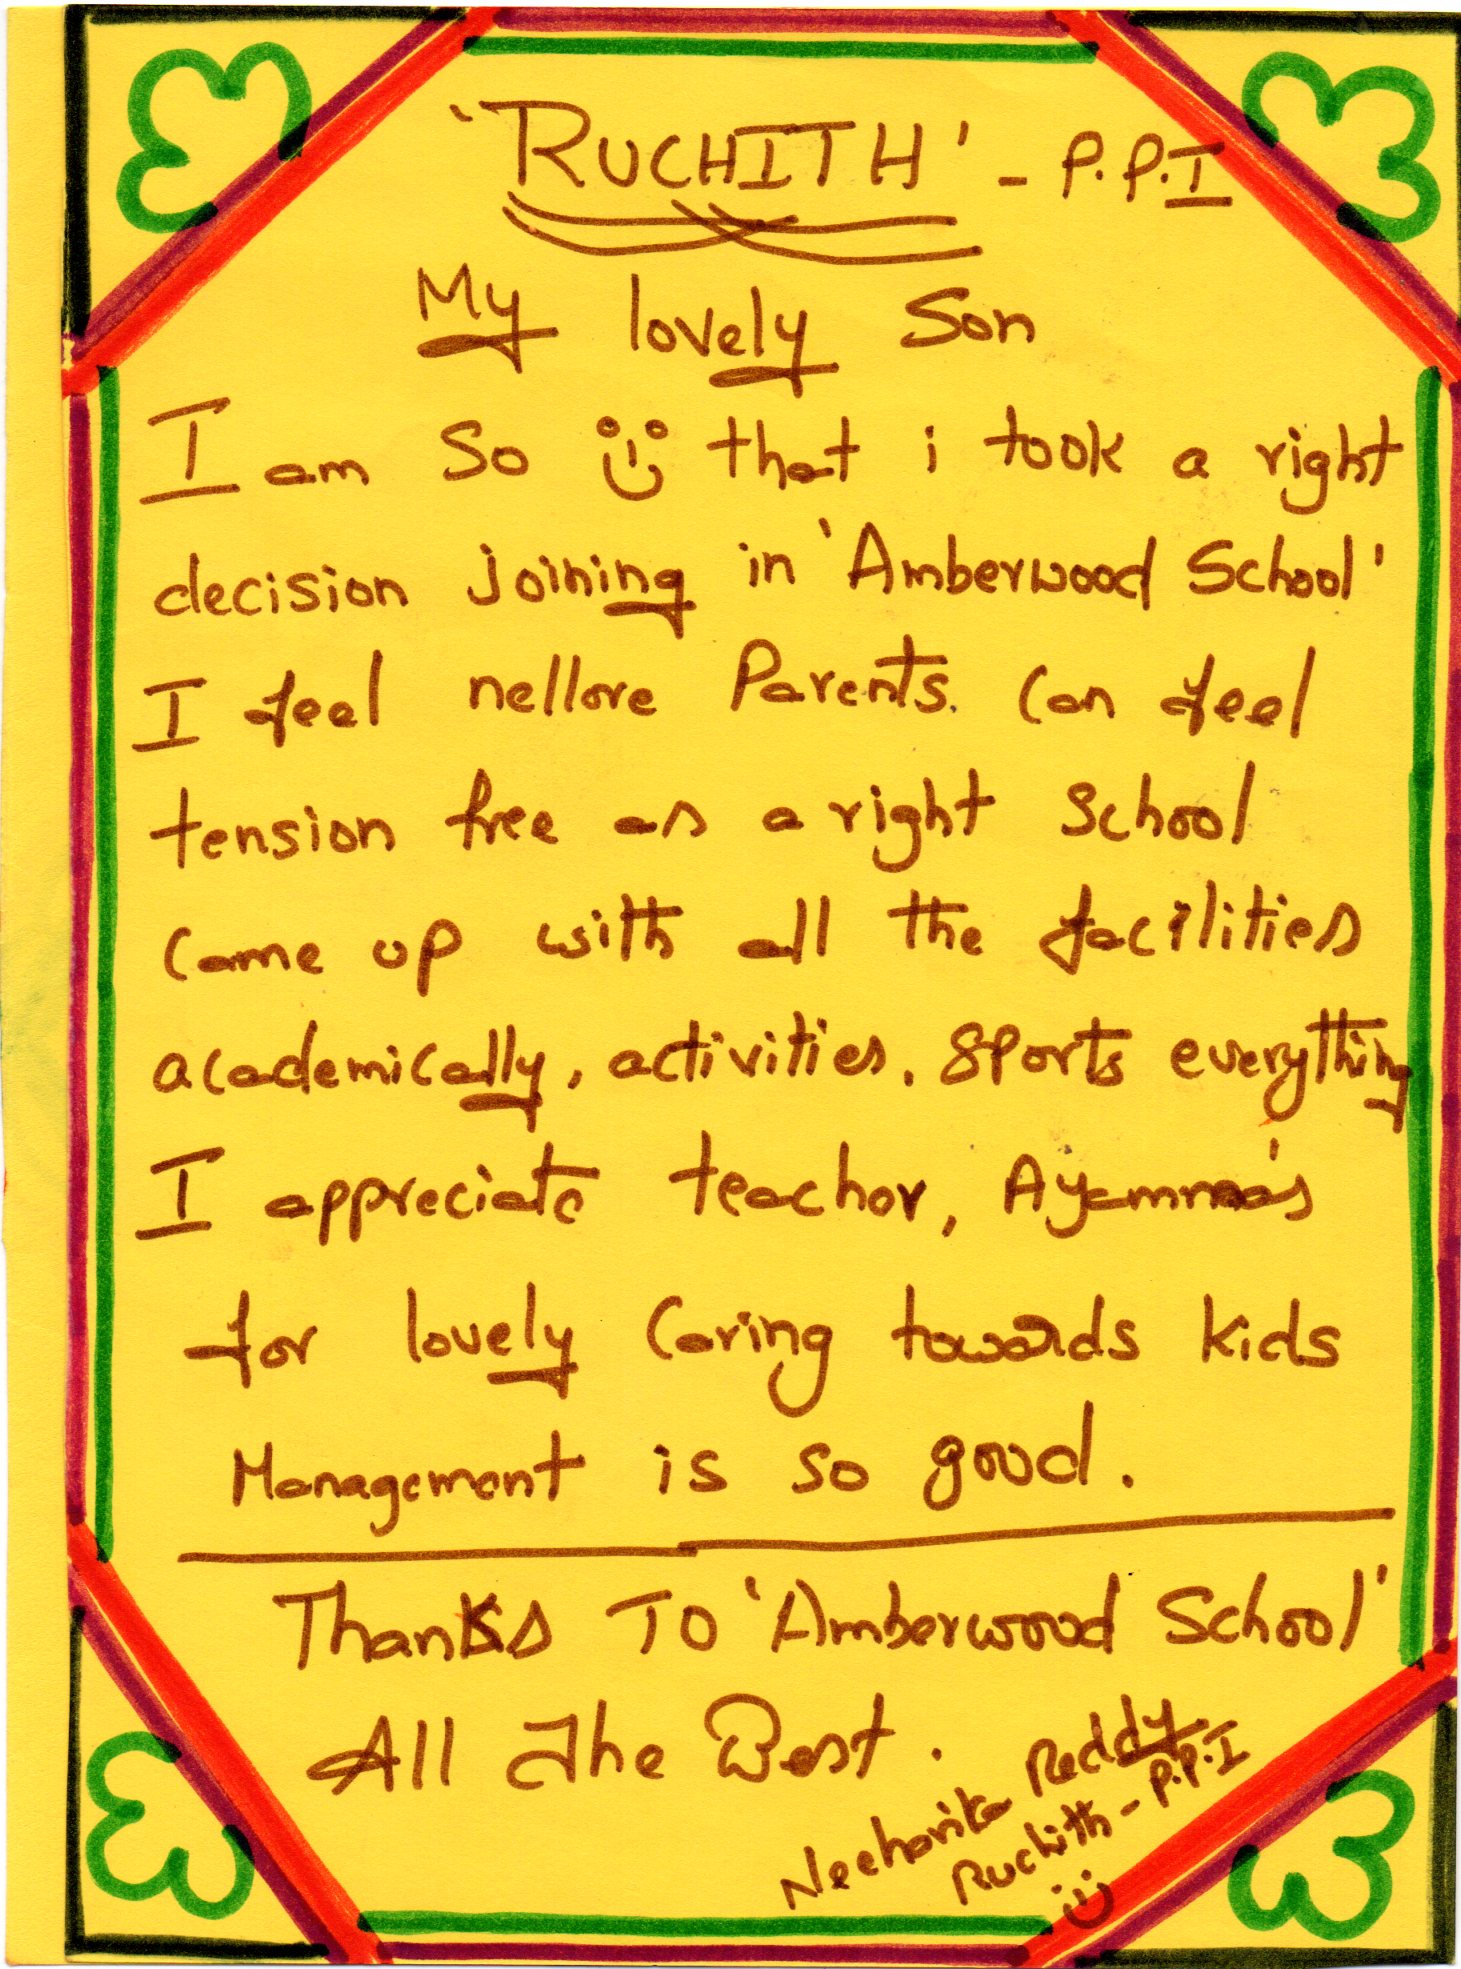 'RUCHITH' - P.P.I
My lovely Son
I am So that i took a right
decision joining in 'Amberwood School'
I feel nellore Parents. Can feel
tension free as a right School
Came up with all the facilities
academically, activities, Sports everything
I appreciate teacher, Ayamma's
for lovely Caring towards kids
Management is so good.
Thanks To 'Amberwood School'
All The Best.
Neeharika Reddy
Ruchith - P.P.I